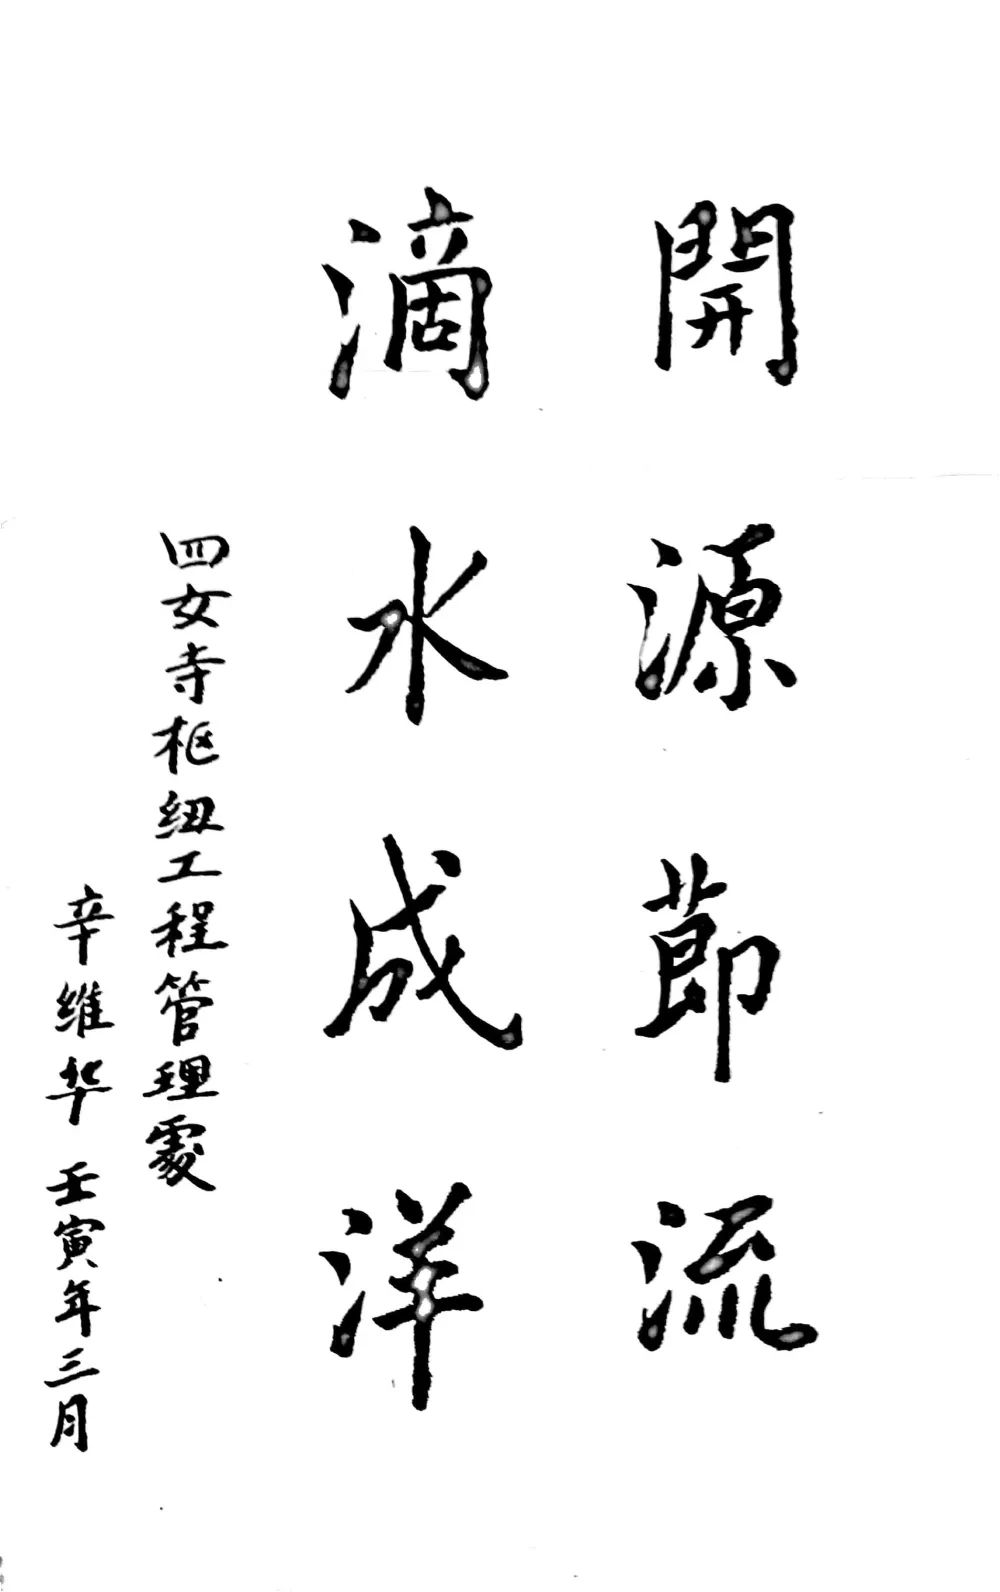 開源節流
滴水成洋
四女寺枢纽工程管理處
辛維华 壬寅年三月